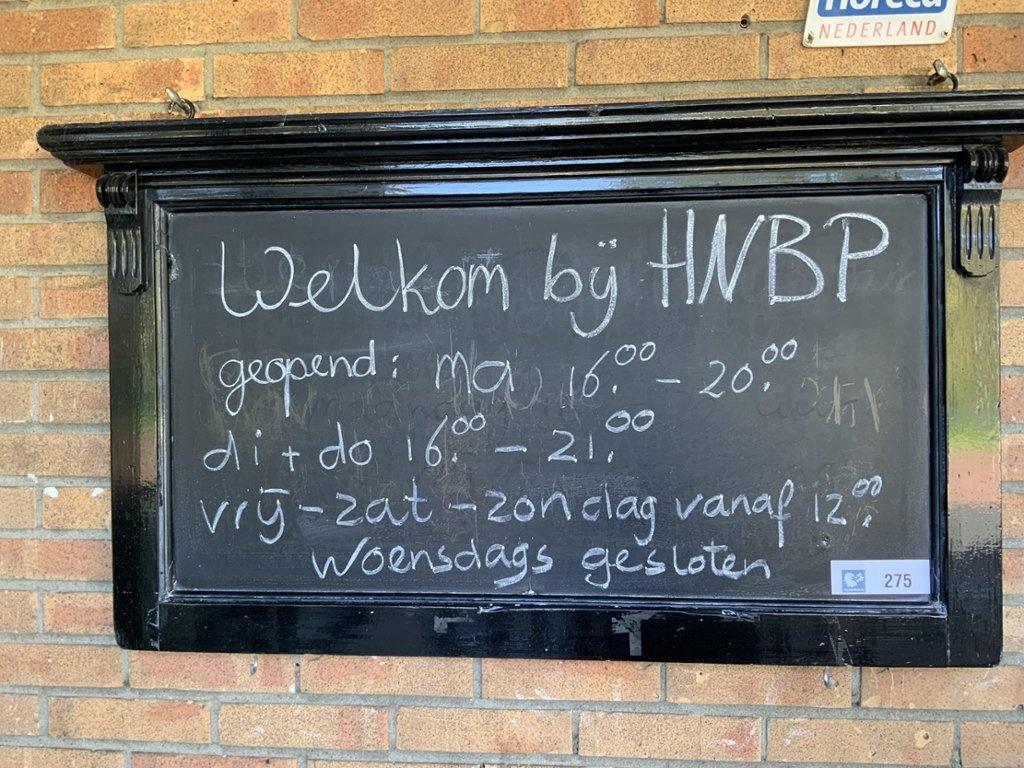 Horeca
NEDERLAND
Welkom bij HNBP
geopend: ma 16.00 - 20.00
di + do 16.00 - 21.00
vrij - zat - zondag vanaf 12.00
Woensdags gesloten
275